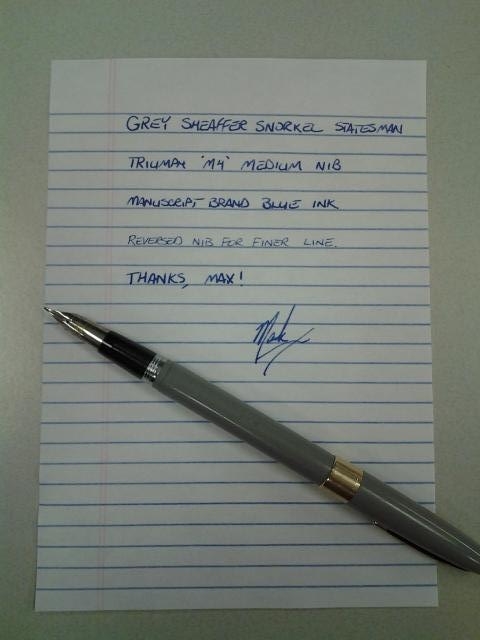 GREY SHEAFFER SNORKEL STATESMAN
TRIUMPH 'M4' MEDIUM NIB
MANUSCRIPT BRAND BLUE INK
REVERSED NIB FOR FINER LINE.
THANKS, MAX!